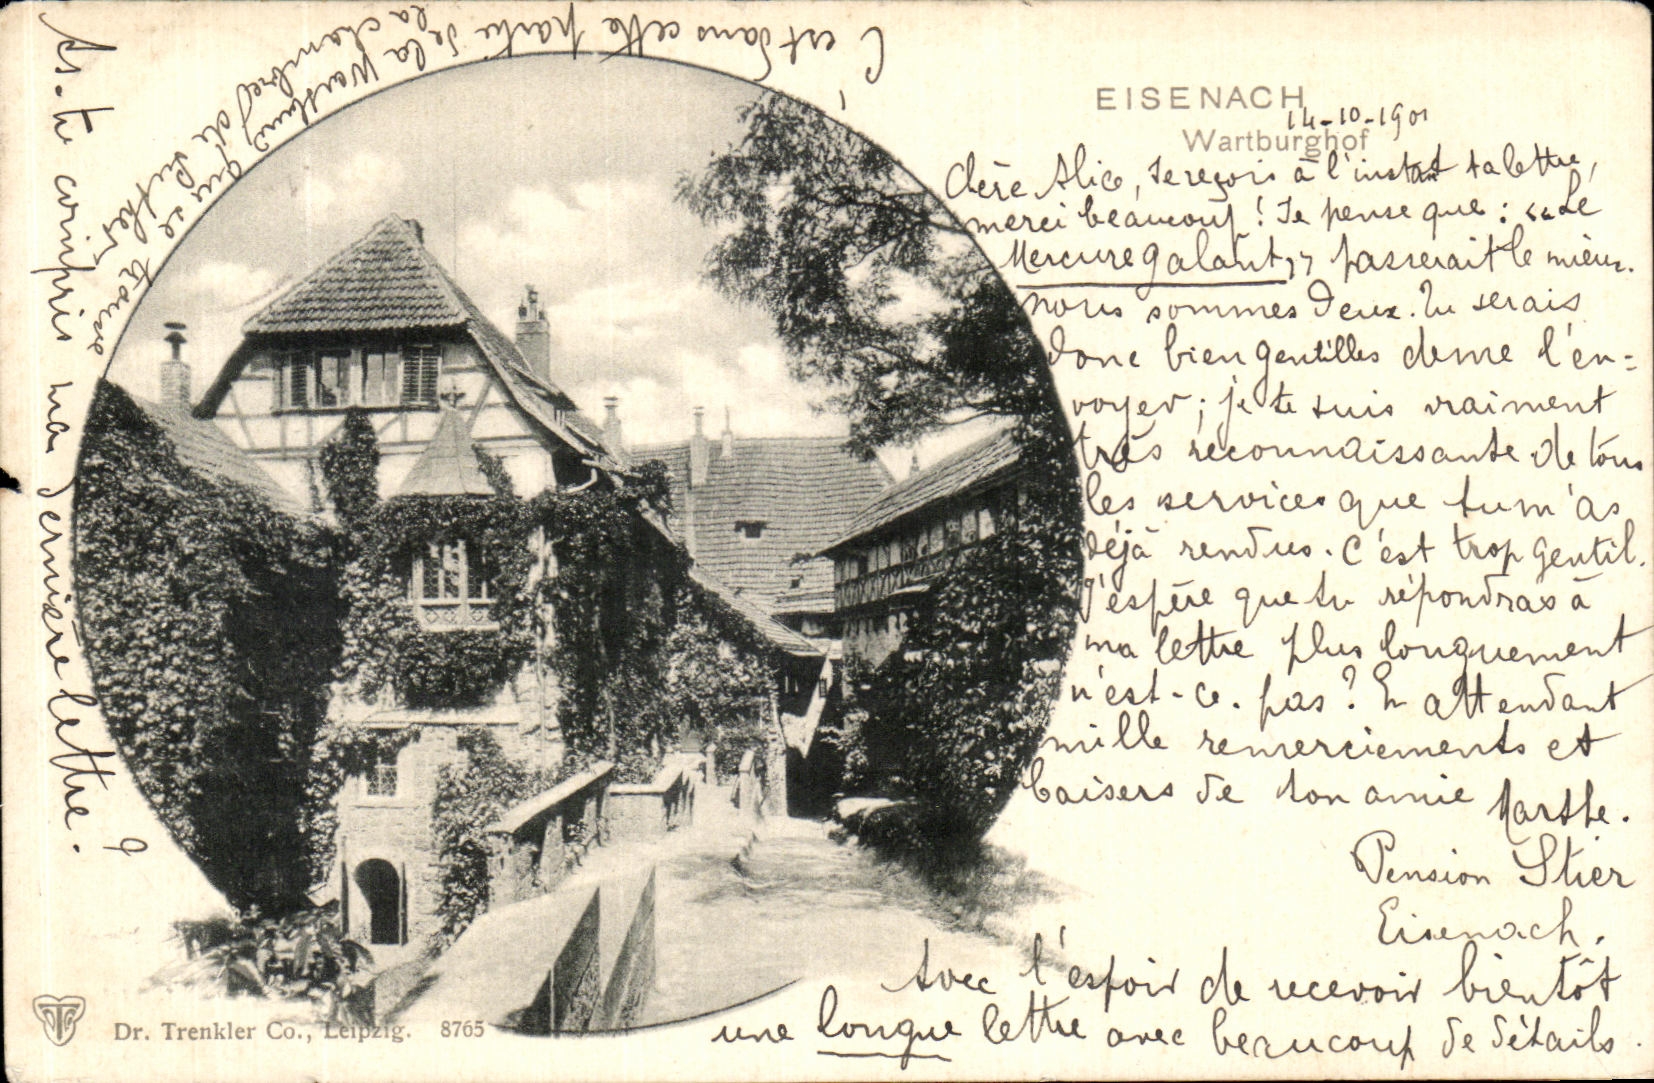 EISENACH
Wartburghof
14-10-1901
Chère Alice, Je reçois à l'instant ta lettre,
merci beaucoup! Je pense que : « Le
Mercure galant » passerait le mieux.
nous sommes deux. Tu serais
donc bien gentilles de me l'en=
voyer ; je te suis vraiment
très reconnaissante de tous
les services que tu m'as
déjà rendus. C'est trop gentil.
J'espère que tu répondras à
ma lettre plus longuement
n'est-ce. pas? En attendant
mille remerciements et
baisers de ton amie Marthe.
Pension Stier
Eisenach.
Avec l'espoir de recevoir bientôt
une longue lettre avec beaucoup de détails.
C'est dans cette partie de la Wartburg que se trouve
la chambre de Luther.
As-tu compris ma dernière lettre. ?
Dr. Trenkler Co., Leipzig. 8765